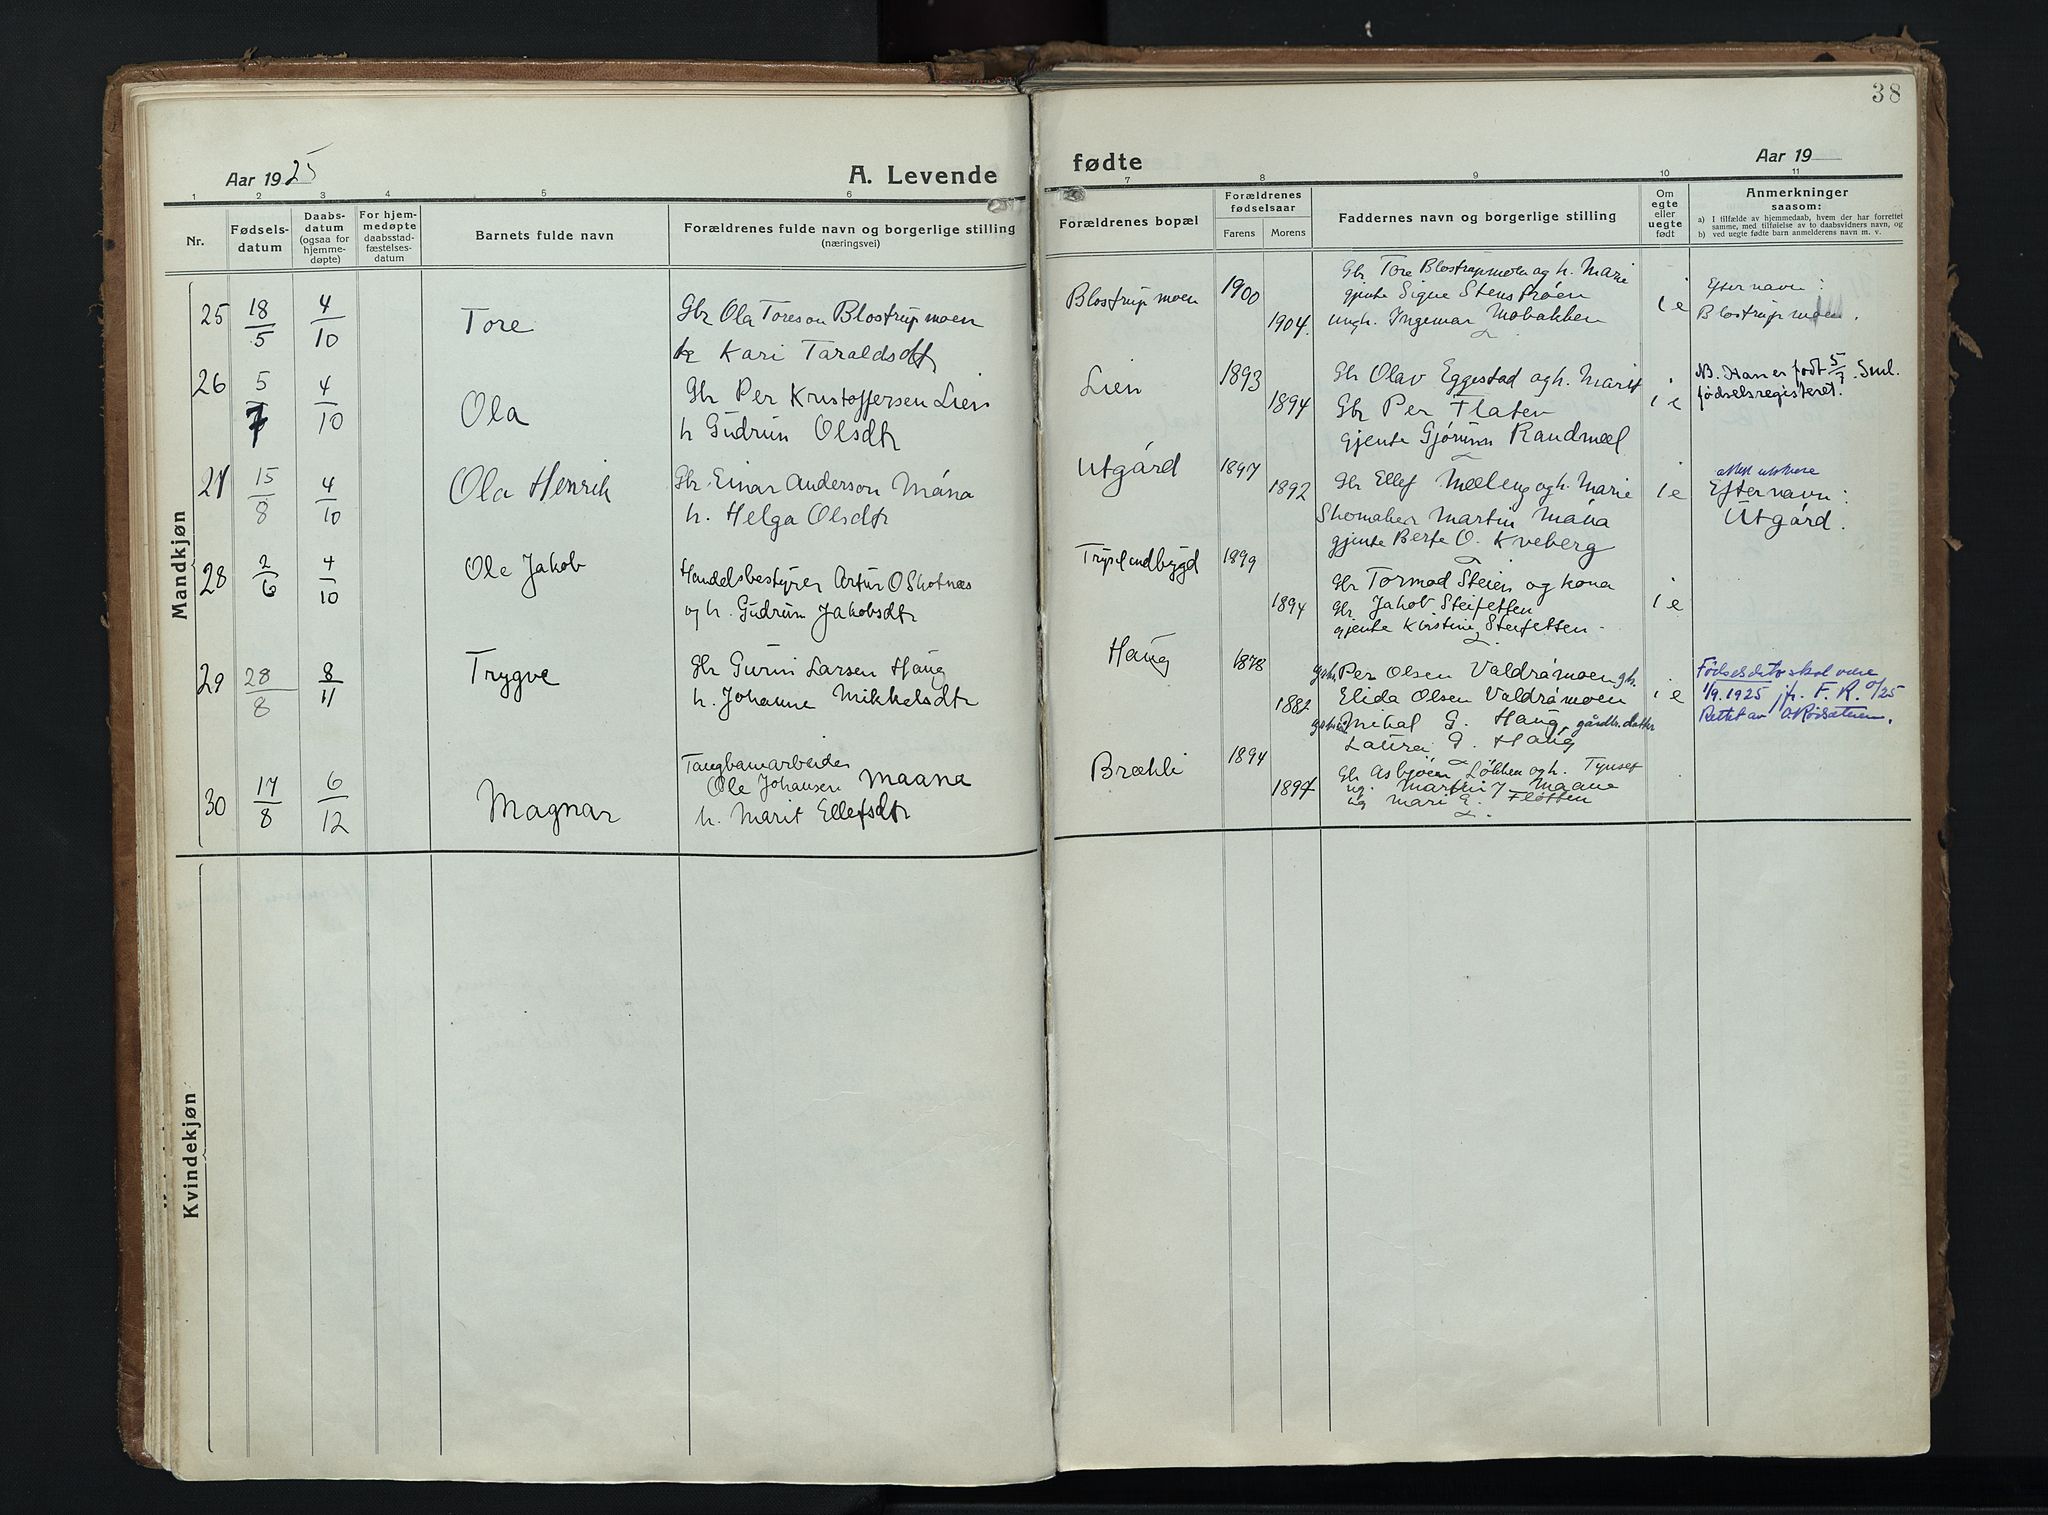 38
Aar 1925
A. Levende
fødte
Aar 19
1 2 3 4 5 6 7 8 9 10 11
Nr.
Fødsels-
datum
Daabs-
datum
(ogsaa for
hjemme-
døpte)
For hjem-
medøpte
daabsstad-
fæstelses-
datum
Barnets fulde navn
Forældrenes fulde navn og borgerlige stilling
(næringsvei)
Forældrenes bopæl
Forældrenes
fødselsaar
Farens Morens
Faddernes navn og borgerlige stilling
Om
egte
eller
uegte
født
Anmerkninger
saasom:
a) I tilfælde av hjemmedaab, hvem der har forrettet
samme, med tilføielse av to daabsvidners navn, og
b) ved uegte fødte barn anmelderens navn m. v.
Mandkjøn
25 18/5 4/10 Tore
Gbr Ola Toreson Blostrupmoen
Kari Taraldsdtr
Blostrupmoen 1900 1904.
Gbr Tore Blostrupmoen og h. Marie
gjente Signe Stenstrøen
ungk. Ingemar Mobakken
i e
Efternavn:
Blostrupmoen.
26 5/7 4/10 Ola
Gbr Per Kristoffersen Lien
h Gudrun Olsdtr
Lien 1893 1894
Gbr Olav Eggestad og h. Marit
Gbr Per Flaten
gjente Gjørunn Randmæl
i e
NB. Han er født 5/7. Sml.
fødselsregisteret.
27 15/8 4/10 Ola Henrik
Gbr. Einar Anderson Måna
h. Helga Olsdtr
Utgård 1897 1892
Gbr Ellef Mæleng og h. Marie
Skomaker Martin Måna
gjente Berte O. Kveberg
i e
Efternavn:
Utgård.
28 2/6 4/10 Ole Jakob
Handelsbestyrer Artur O Skotnæs
og h. Gudrun Jakobsdtr
Tryslendbygd 1899 1894
Gbr Tormod Steien og kona
Gbr Jakob Steifetten
gjente Kirstine Steifetten
i e
29 28/8 8/11 Trygve
Gbr Gunni Larsen Haug
h. Johanne Mikkelsdtr
Haug 1878 1882
Per Olsen Valdråmoen gh.
Elida Olsen Valdråmoen
Mikal G. Haug gårdbr. datter
Laura G. Haug
i e
Fødselsdato skal være
1/9.1925 jfr. F. R.
Rettet av
30 17/8 6/12 Magnar
Ole Johansen Maana
h. Marit Ellefsdtr
Brækli 1894 1897
Gbr Asbjøen Løkken og h. Tynset
ug. Martin J Maane
ug Mari E. Fløtten
Kvindekjøn